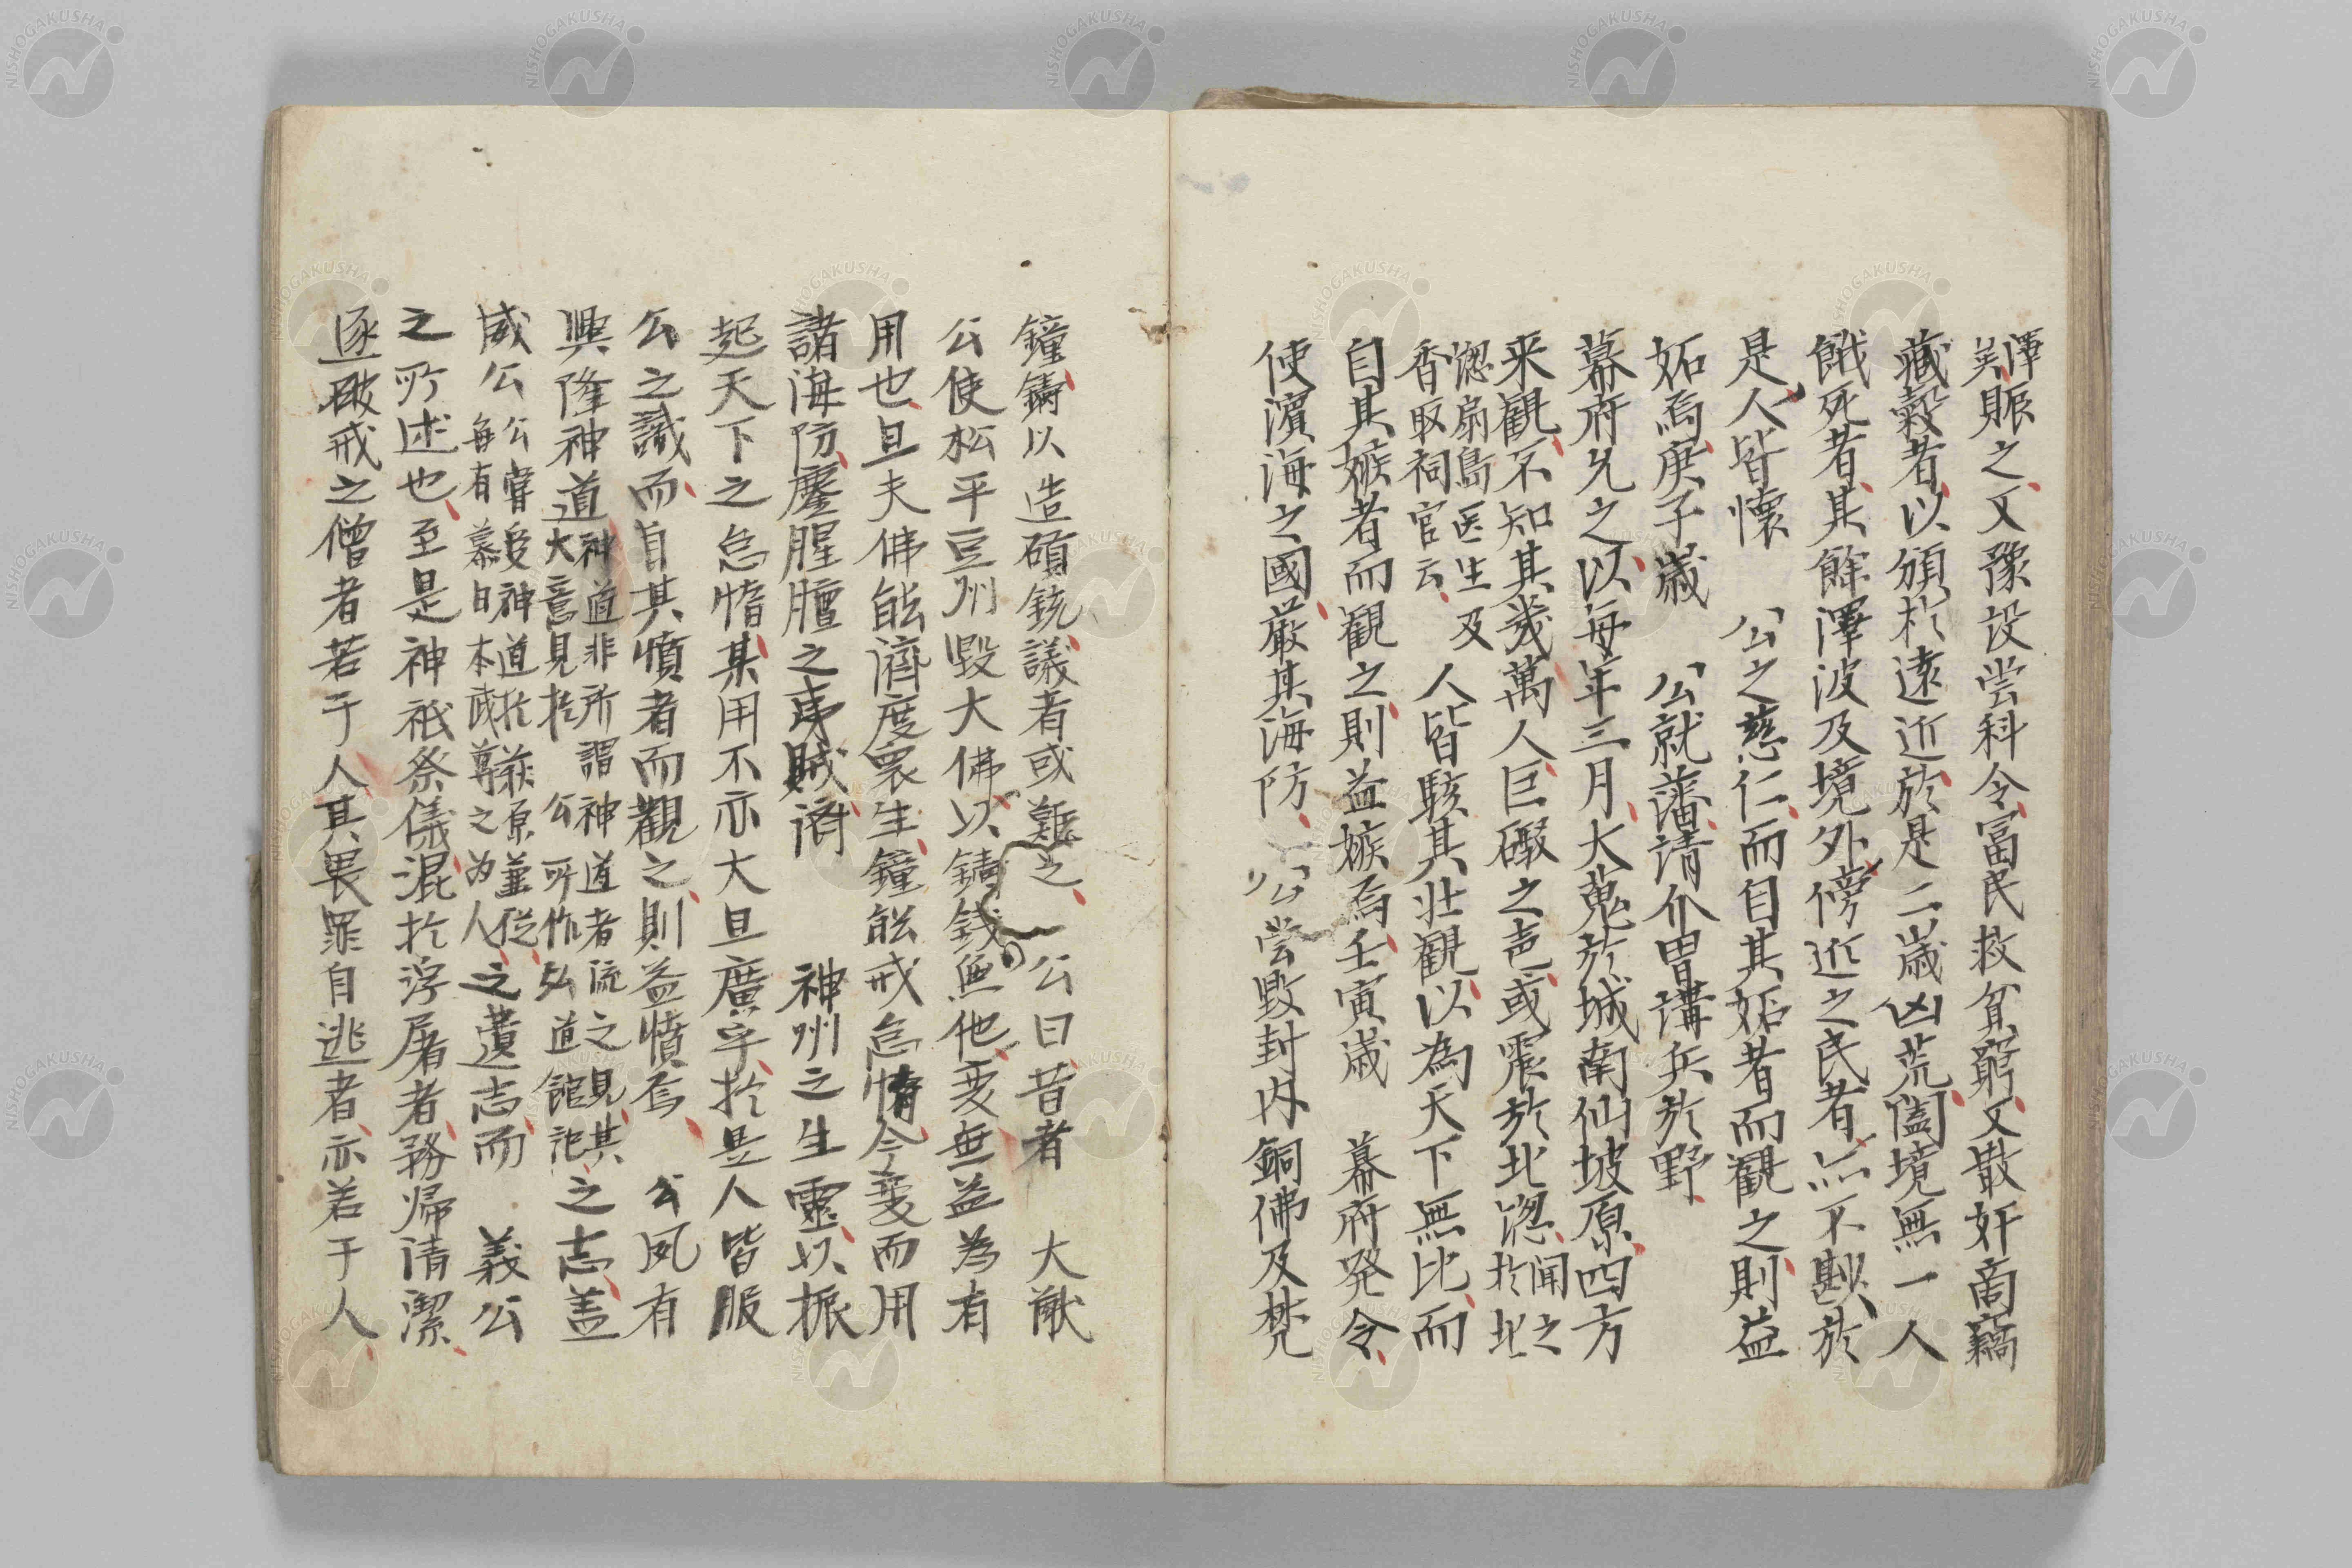 澤矣賑之又豫設嘗科令富民救貧窮又散奸商竊
藏穀者以頒於遠近於是二歳凶荒闔境無一人
餓死者其餘澤波及境外傍近之民者亦不尠於
是人皆懷　公之慈仁而自其妬者而觀之則益
妬焉庚子歳　公就藩請介冑講兵於野
幕府允之以毎年三月大蒐於城南仙坡原四方
来觀不知其幾萬人巨礮之声或震於北總聞之於北
總扇島医生及香取祠官云人皆駭其壮觀以為天下無比而
自其嫉者而觀之則益嫉焉壬寅歳　幕府発令
使濱海之國厳其海防　公嘗毀封内銅佛及梵
鐘鑄以造碩銃議者或難之　公曰昔者　大猷
公使松平豆州毀大佛以鑄錢無他変無益為有
用也且夫佛能濟度衆生鐘能戒怠惰今変而用
諸海防鏖腥膻之夷賊濟　神州之生靈以振
起天下之怠惰某用不亦大且廣乎於是人皆服
公之識而自其憤者而觀之則益憤焉　公夙有
興隆神道神道非所謂神道者流之見其大意見於　公所作弘道館記之志盖
威公公嘗受神道於萩原兼従毎有慕日本武尊之為人之遺志而　義公
之所述也至是神祇祭儀混於浮屠者務帰清潔
逐破戒之僧者若干人其畏罪自逃者亦若干人
NISHOGAKUSHA